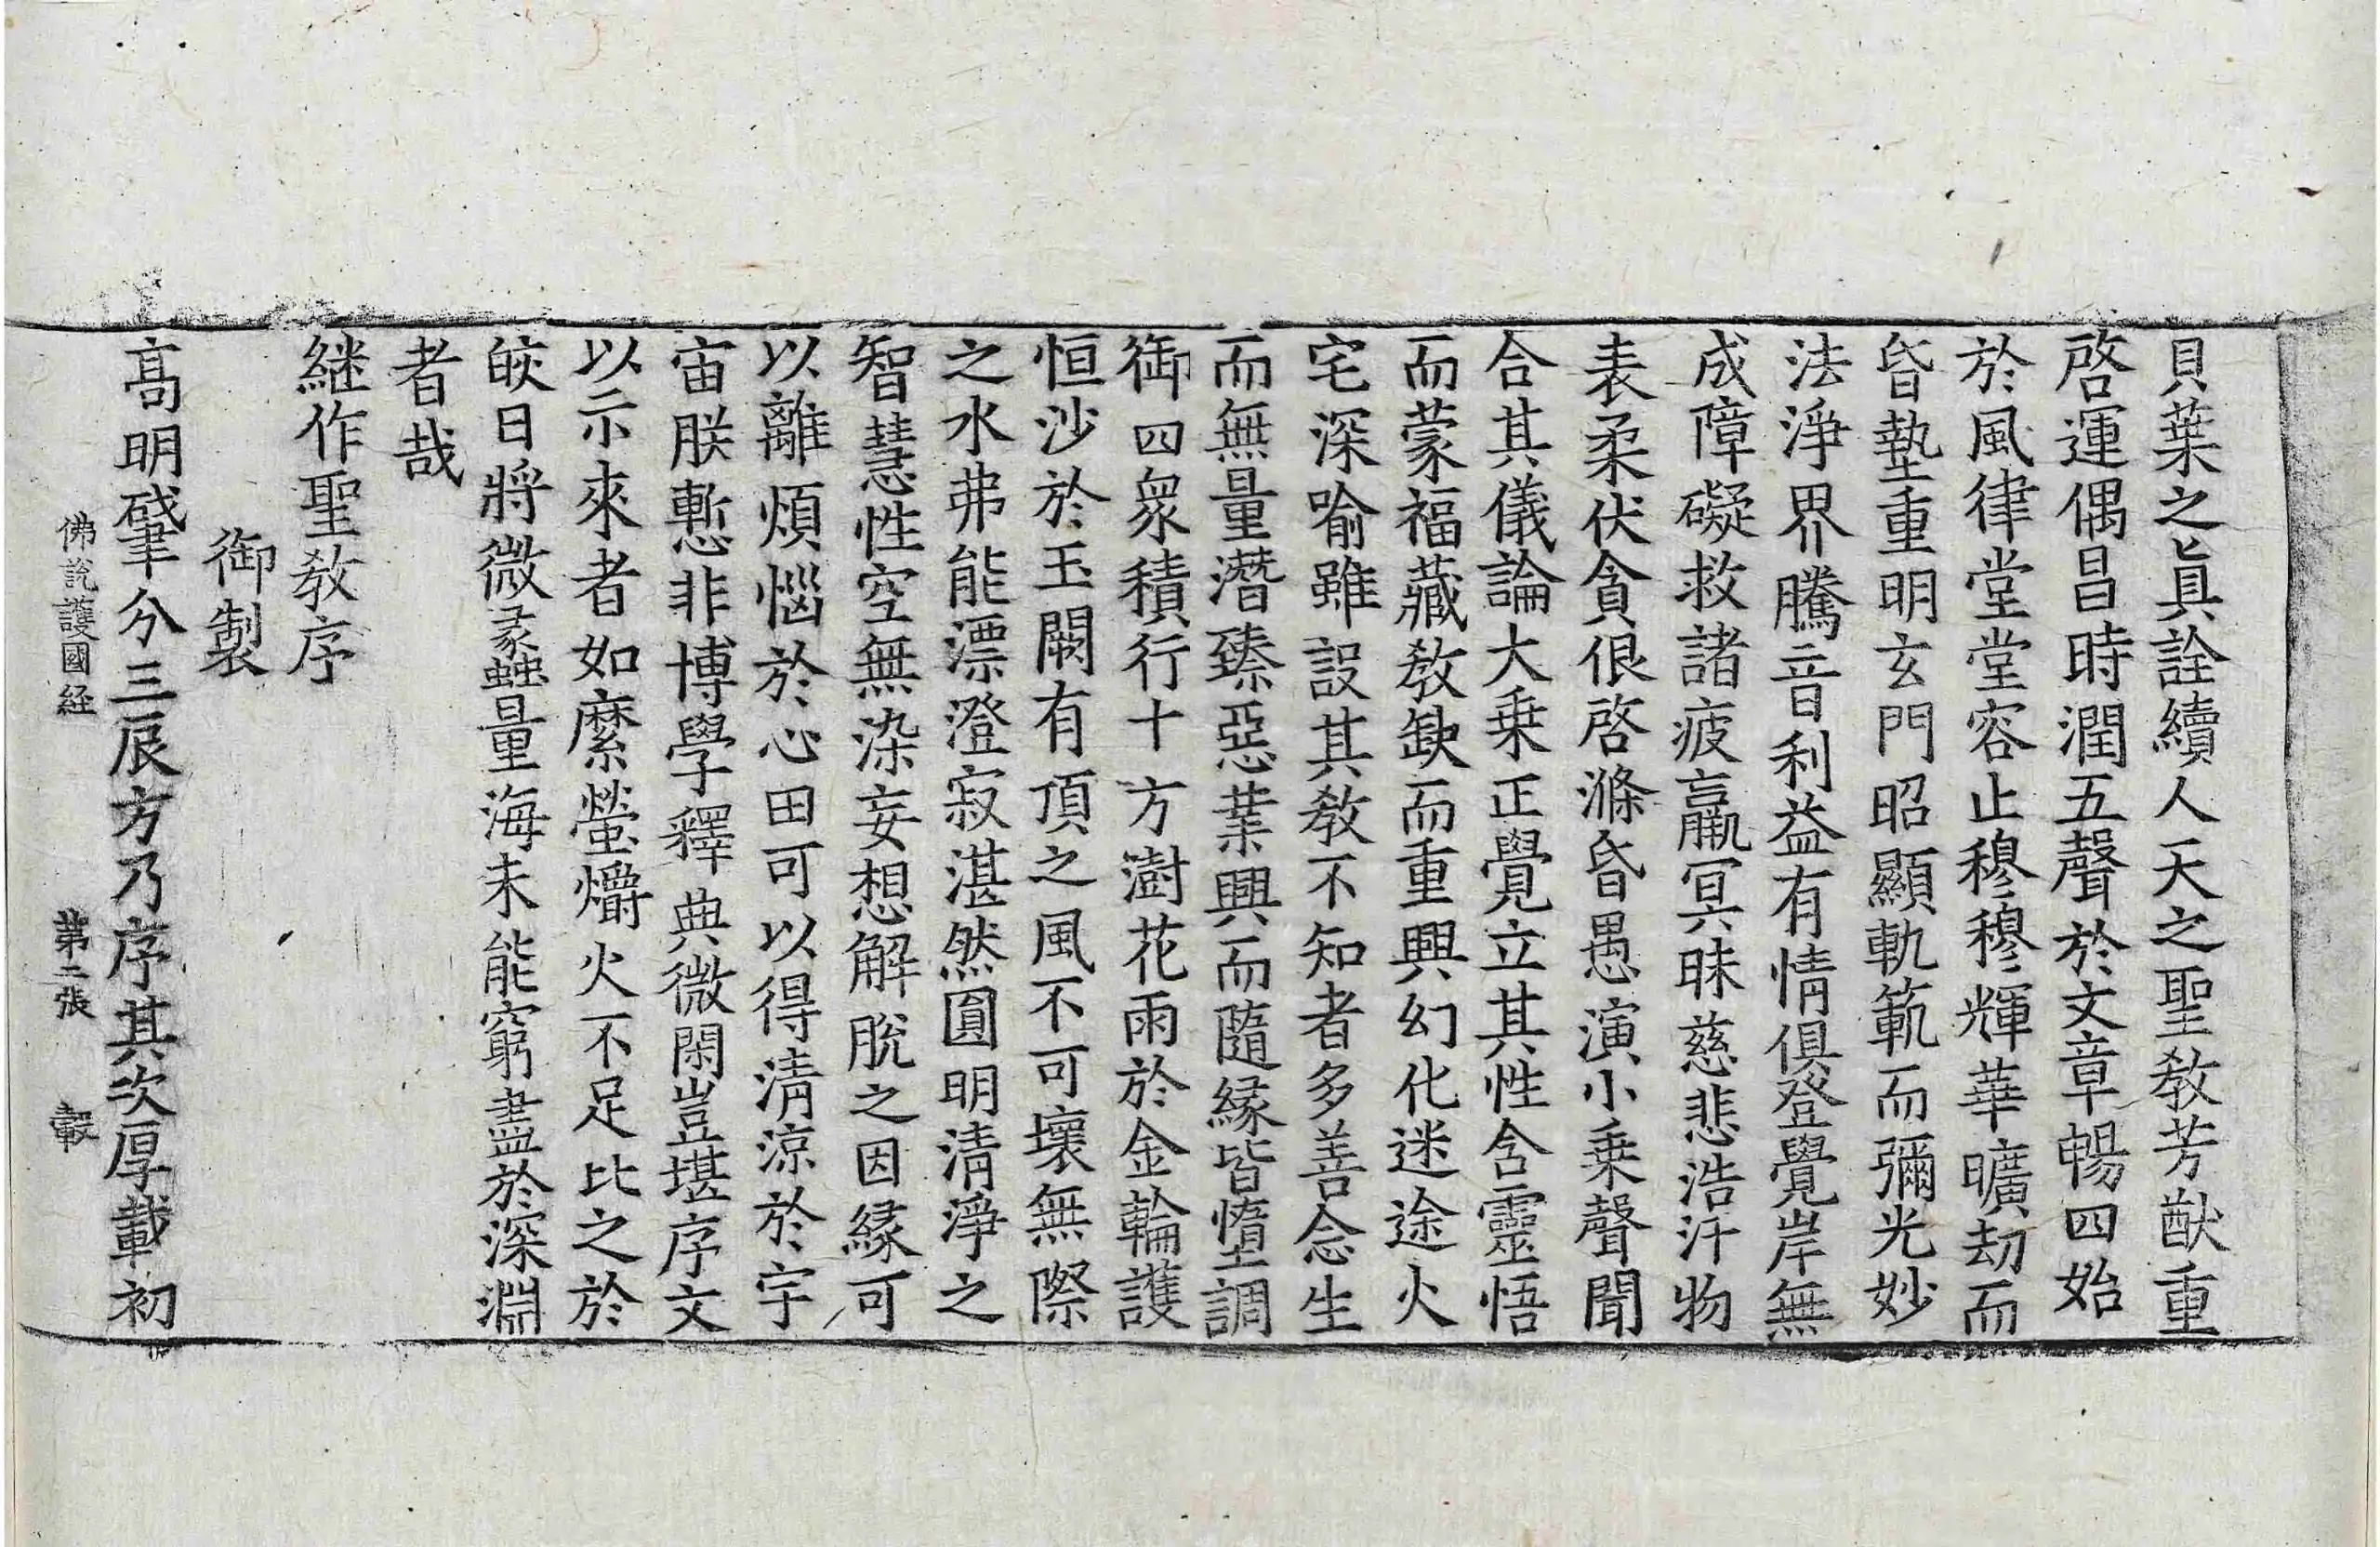 貝葉之眞詮續人天之聖敎芳猷重
啓運偶昌時潤五聲於文章暢四始
於風律堂堂容止穆穆輝華曠劫而
昏墊重明玄門昭顯軌範而彌光妙
法淨界騰音利益有情俱登覺岸無
成障礙救諸疲羸冥昧慈悲浩汗物
表柔伏貪佷啓滌昏愚演小乗聲聞
合其儀論大乗正覺立其性含靈悟
而蒙福藏敎缺而重興幻化迷途火
宅深喻雖設其敎不知者多善念生
而無量潛臻惡業興而隨緣皆墮調
御四衆積行十方澍花雨於金輪護
恒沙於玉闕有頂之風不可壞無際
之水弗能漂澄寂湛然圓明清淨之
智慧性空無染妄想解脫之因緣可
以離煩惱於心田可以得清涼於宇
宙朕慙非博學釋典微閑豈堪序文
以示來者如縻螢爝火不足比之於
皎日將微蠡量海未能窮盡於深淵
者哉
継作聖敎序
御製
高明肇分三辰方乃序其次厚載初
佛說護國経 第二張 轂